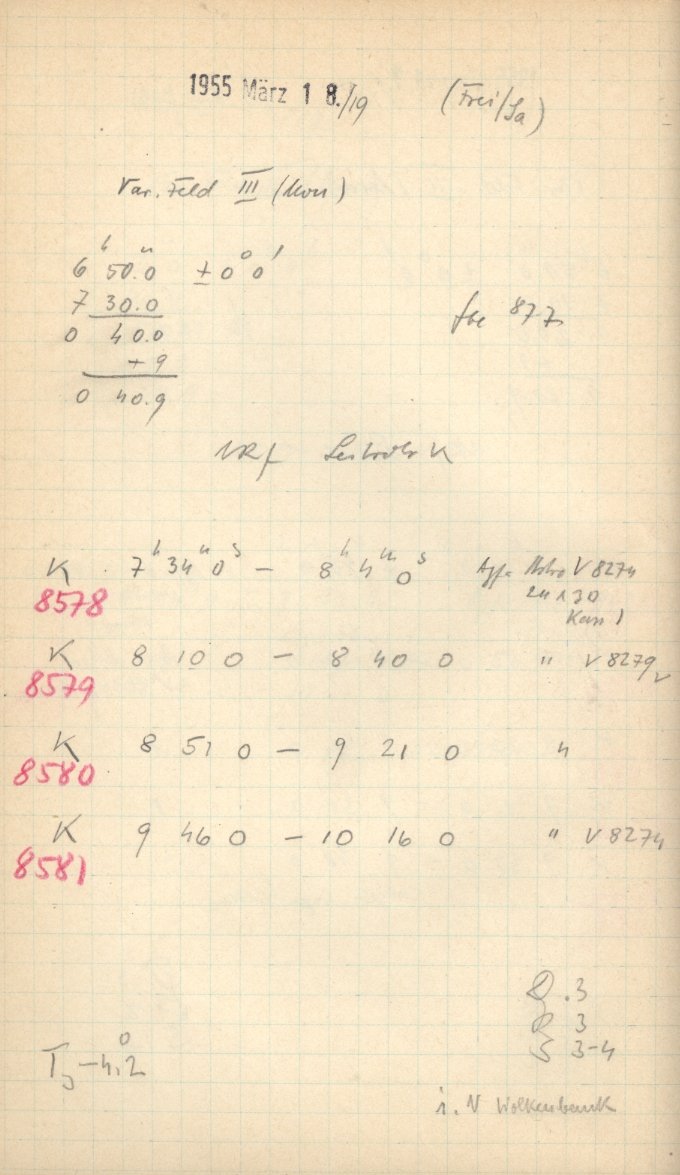 1955 März 18./19 (Frei/Sa)
Var. Feld III (Mon)
6 h 50.0 m ± 0° 0'
7 30.0
0 40.0
+ 9
0 40.9
877
K 7 h 34 m 0 s — 8 h 4 m 0 s Agfa Astro V 8274
8578 24 x 30
K 8 10 0 — 8 40 0 " V 8279
8579
K 8 51 0 — 9 21 0 "
8580
K 9 46 0 — 10 16 0 " V 8274
8581
3
3
3-4
T -4.2°
i. N Wolkenbank